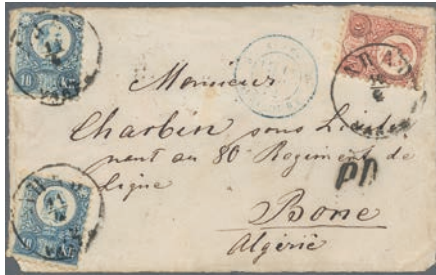 Monsieur
Charbin sous Lieute
nant au 80 Regiment de
ligne
PD
Bone
Algérie
10
10